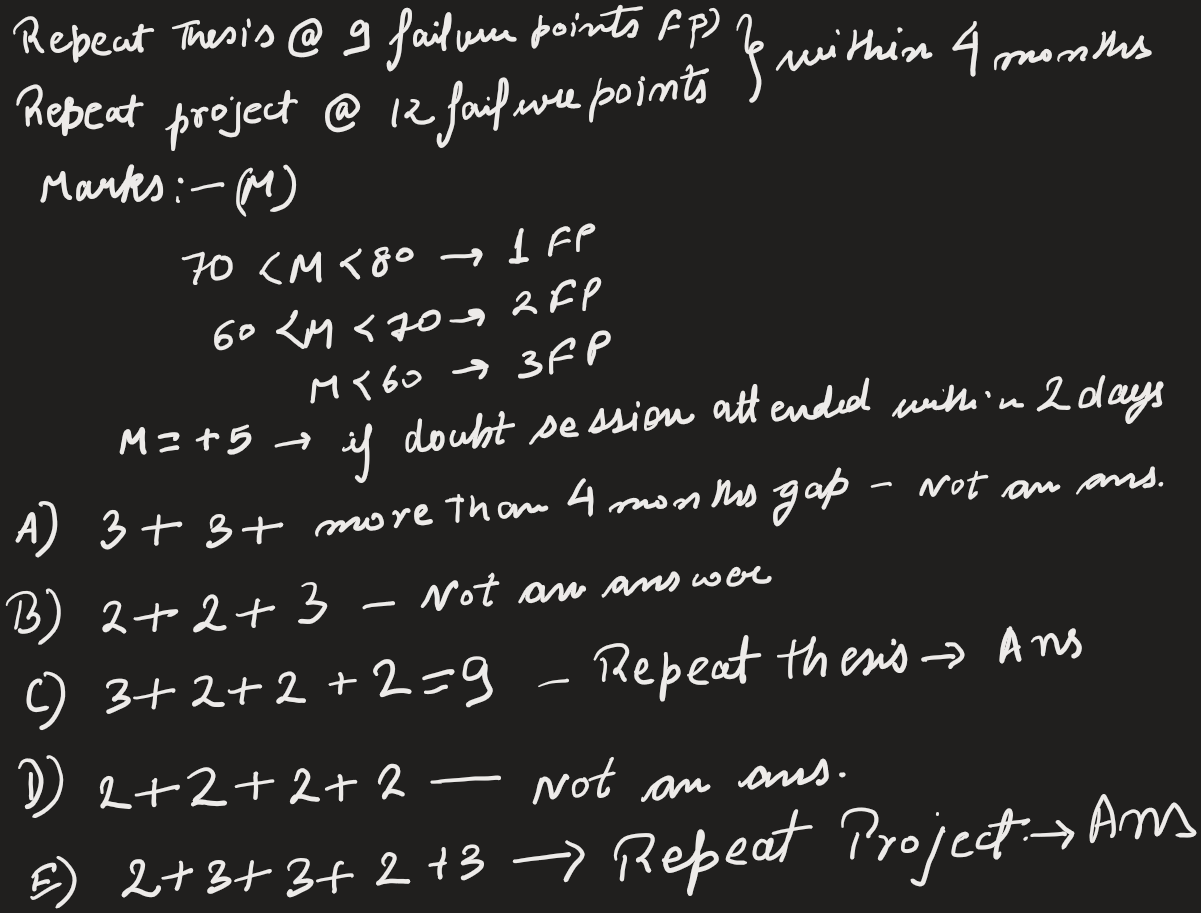 Repeat Thesis @ 9 failure points FP) } within 4 months
Repeat project @ 12 failure points
Marks:- (M)
70 < M < 80 → 1 FP
60 < M < 70 → 2 FP
M < 60 → 3 FP
M = + 5 → if doubt session attended within 2 days
A) 3 + 3 + more than 4 months gap - Not an ans.
B) 2 + 2 + 3 - Not an answer
C) 3 + 2 + 2 + 2 = 9 - Repeat thesis → Ans
D) 2 + 2 + 2 + 2 — Not an ans.
E) 2 + 3 + 3 + 2 + 3 → Repeat Project → Ans